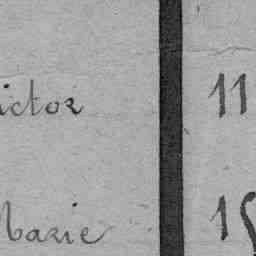 ictor 11
Marie 15